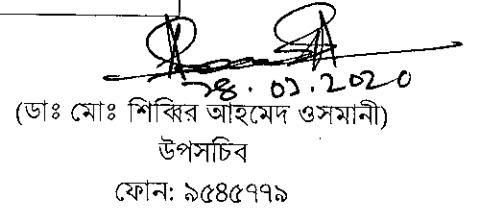 ২৪.০১.2020
(ডাঃ মোঃ শিব্বির আহমেদ ওসমানী)
উপসচিব
ফোন: ৯৫৪৫৭৭৯